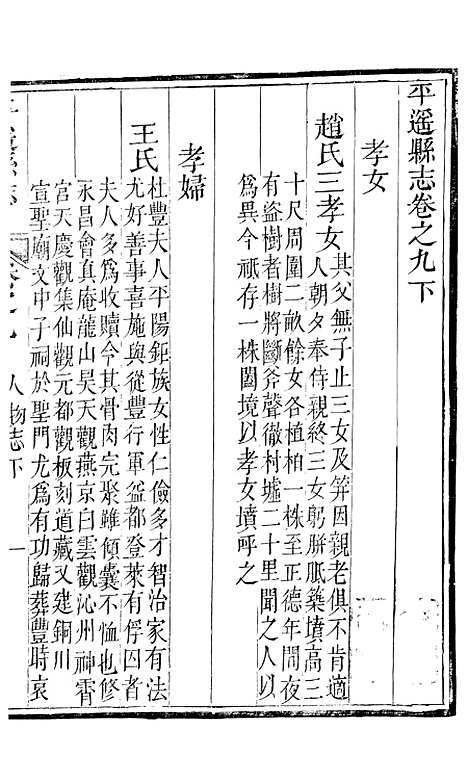 平遥縣志卷之九下
孝女
趙氏三孝女其父無子止三女及笄因親老俱不肯適
人朝夕奉侍親終三女躬胼胝築墳高三
十尺周圍二畝餘女各植柏一株至正德年間夜
有盜樹者樹將斷斧聲徹村墟二十里聞之人以
為異今祗存一株闔境以孝女墳呼之
孝婦
王氏杜豐夫人平陽鉅族女性仁儉多才智治家有法
尤好善事喜施與從豐行軍益都登萊有俘囚者
夫人多為收贖令其骨肉完聚雖傾囊不恤也修
永昌會真庵龍山昊天觀燕京白雲觀沁州神霄
宮天慶觀集仙觀元都觀板刻道藏又建銅川
宣聖廟文中子祠於聖門尤為有功歸葬豐時哀
人物志下
一